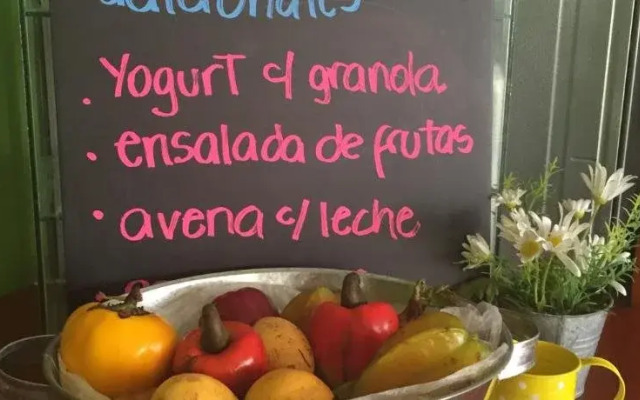 adicionales
· Yogurt c/ granola
· ensalada de frutas
· avena c/ leche